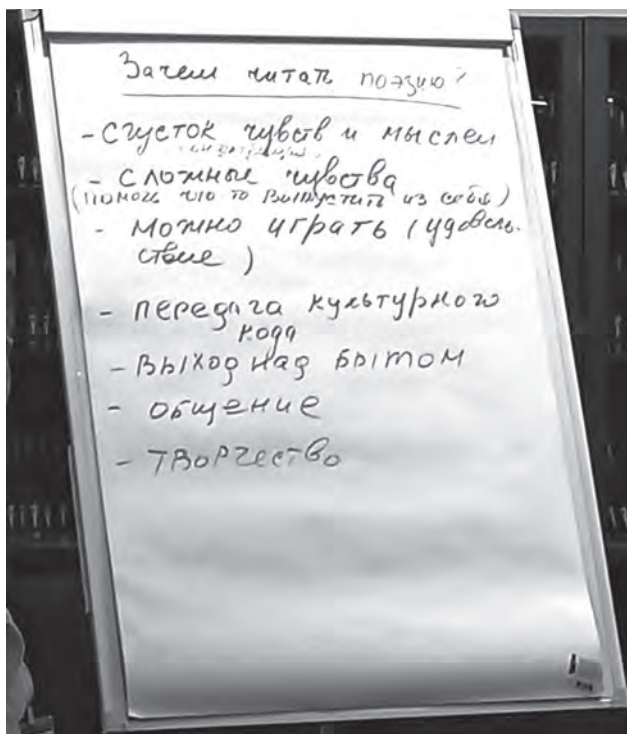 Зачем читать поэзию?
- Сгусток чувств и мыслей
- Сложные чувства
(помочь что то выпустить из себя)
- можно играть (удоволь-
ствие)
- передача культурного
кода
- выход над бытом
- общение
- творчество